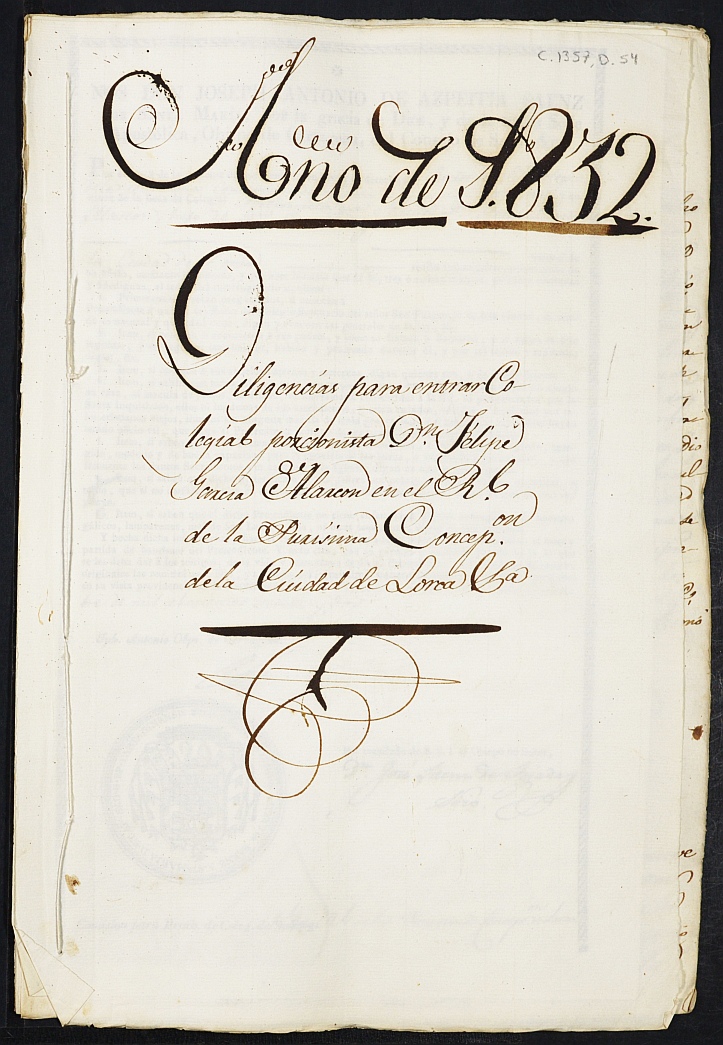 C. 1357, D. 54
Año de 1.832.
Diligencias para entrar Co-
legial porcionista Dn. Felipe
Garcia Alarcon en el Rl.
de la Purisima Concepon.
de la Ciudad de Lorca